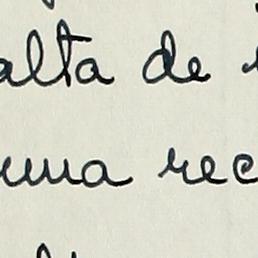 alta de
uma rec